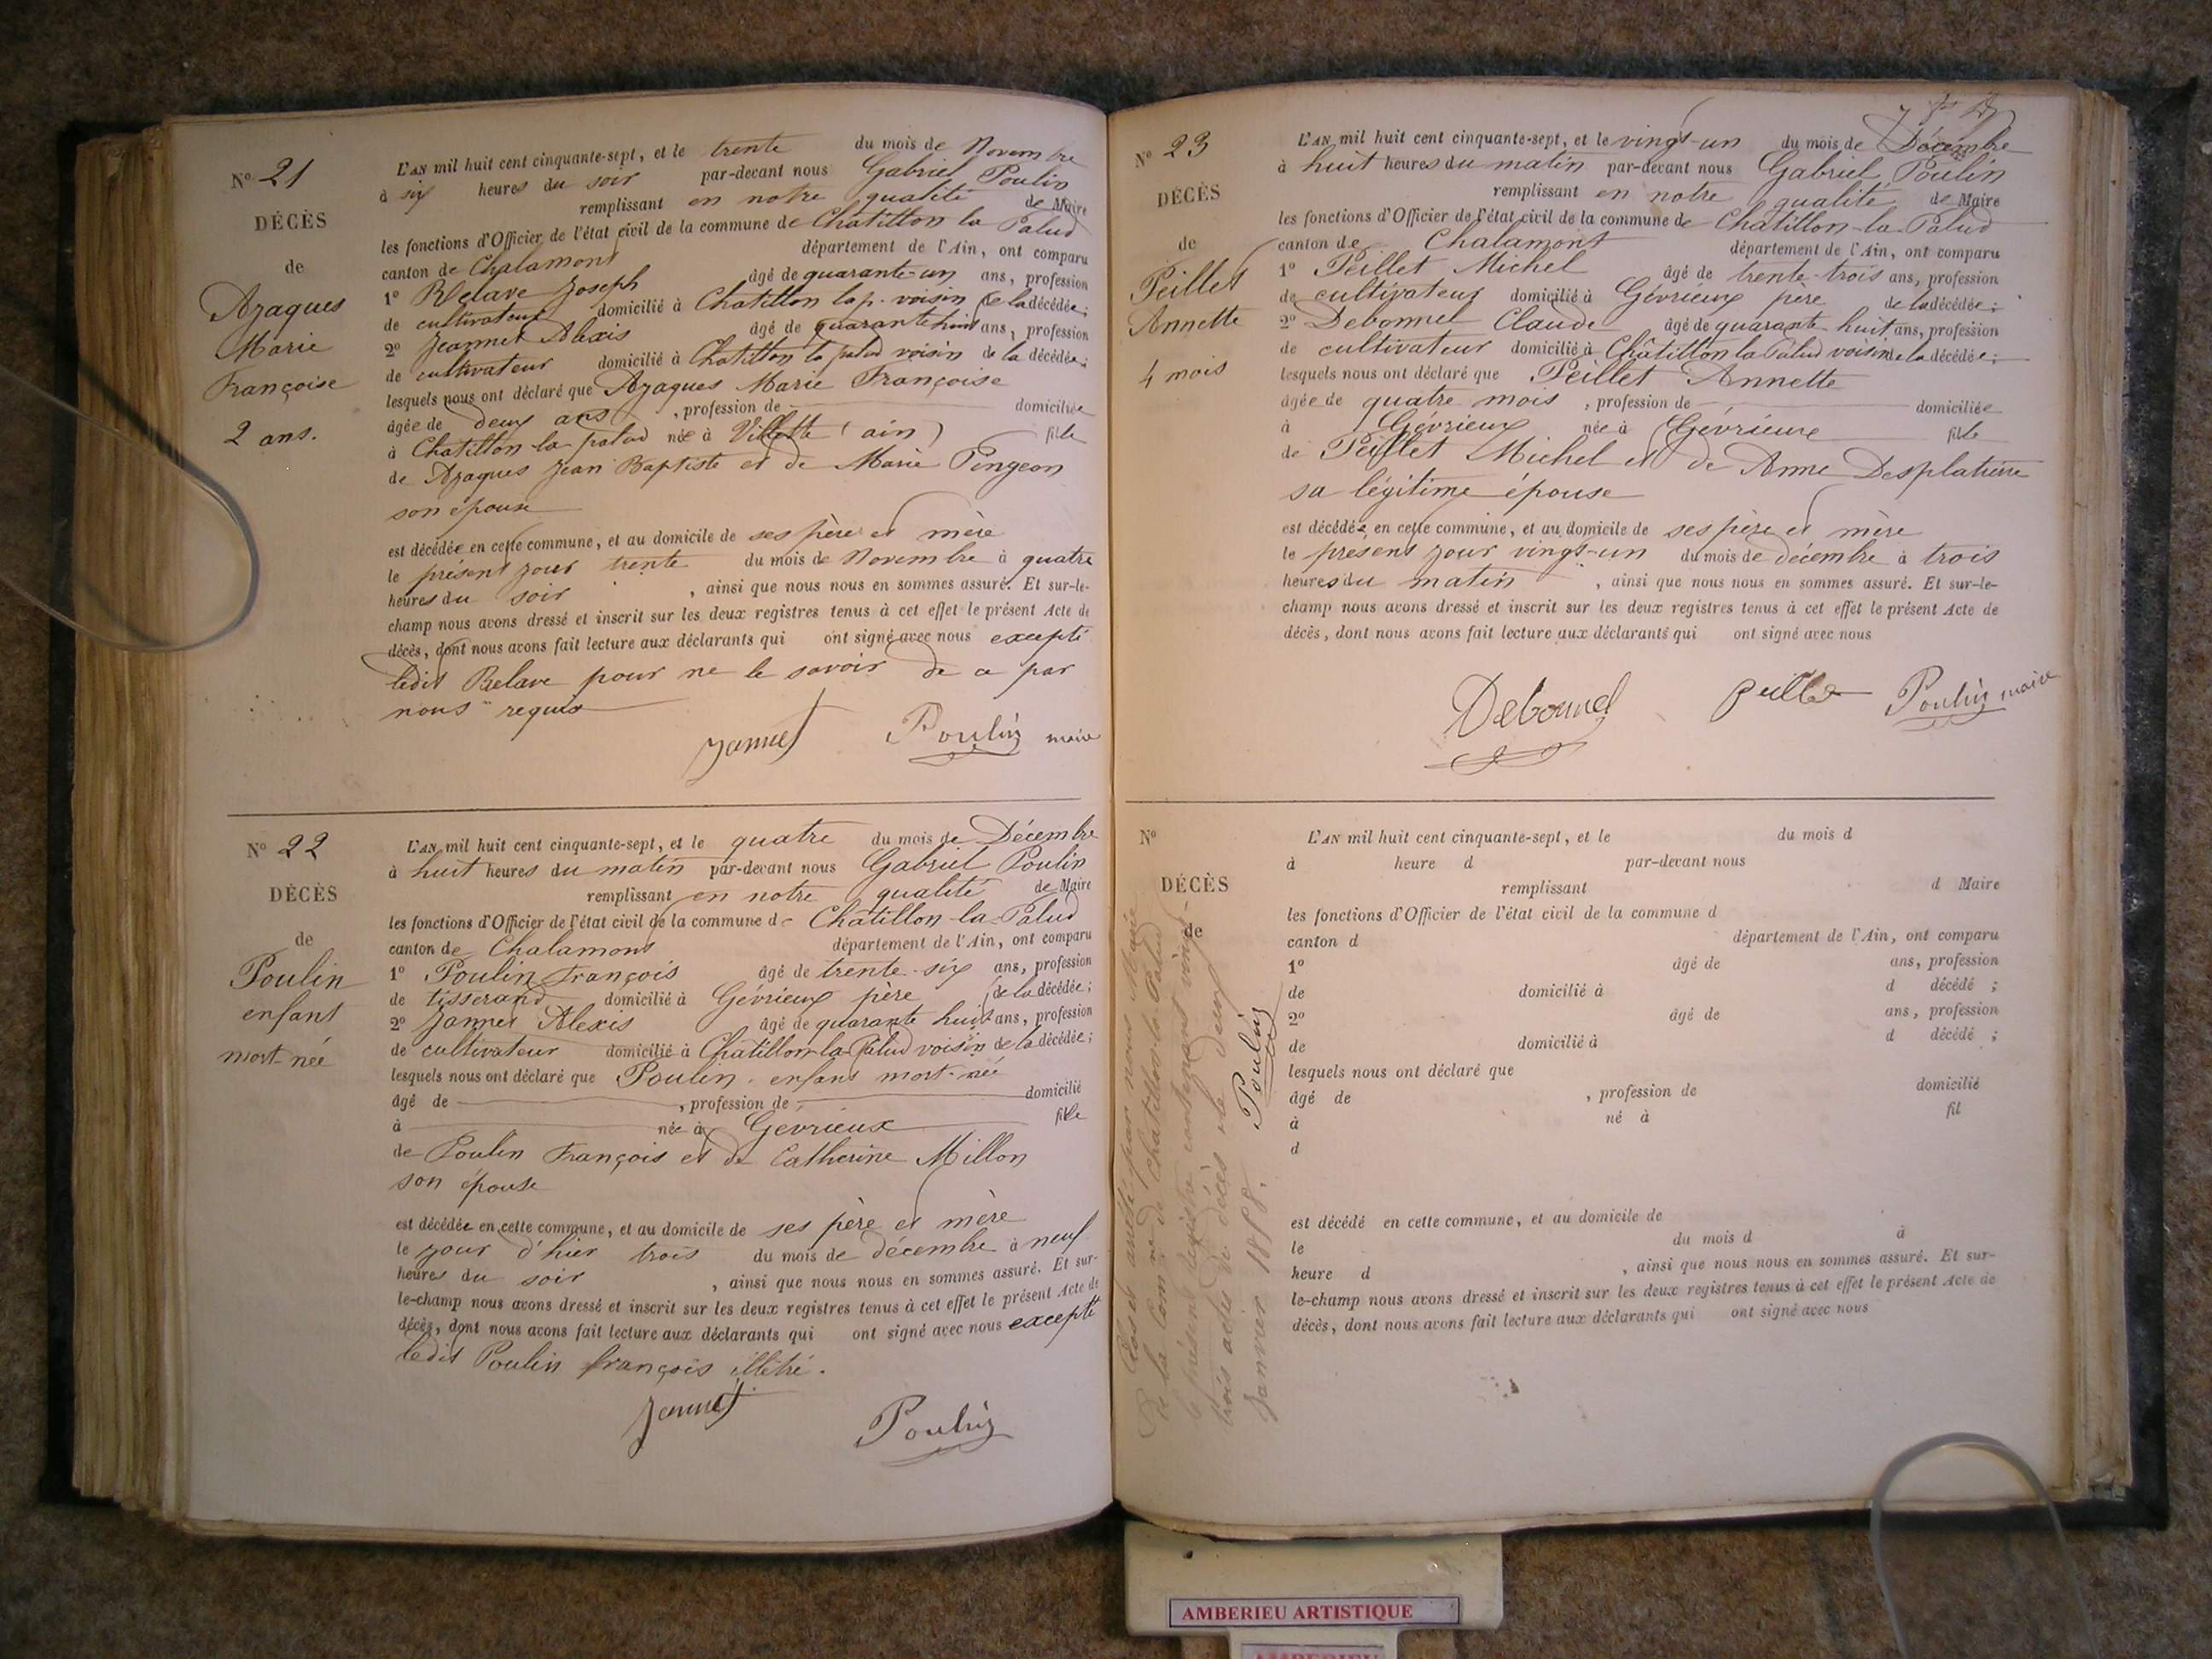 N° 21
DÉCÈS
de
Azaques
Marie
Françoise
2 ans.
L'AN mil huit cent cinquante-sept, et le trente du mois de Novembre
à six heures du soir par-devant nous Gabriel Poulin
remplissant en notre qualité de Maire
les fonctions d'Officier de l'état civil de la commune de Chatillon la Palud
canton de Chalamont département de l'Ain, ont comparu
1° Belave Joseph âgé de quarante-un ans, profession
de cultivateur domicilié à Chatillon la p. voisin de la décédée;
2° Jeannet Alexis âgé de quarante huit ans, profession
de cultivateur domicilié à Chatillon la palud voisin de la décédée;
lesquels nous ont déclaré que Azaques Marie Françoise
âgée de deux ans, profession de domiciliée
à Chatillon la palud née à Villette (ain) fille
de Azaques Jean Baptiste et de Marie Pingeon
son épouse
est décédée en cette commune, et au domicile de ses père et mère
le présent jour trente du mois de Novembre à quatre
heures du soir, ainsi que nous nous en sommes assuré. Et sur-le-
champ nous avons dressé et inscrit sur les deux registres tenus à cet effet le présent Acte de
décès, dont nous avons fait lecture aux déclarants qui ont signé avec nous excepté
ledit Belave pour ne le savoir de a par
nous requis
Jannet Poulin maire
N° 22
DÉCÈS
de
Poulin
enfant
mort-née
L'AN mil huit cent cinquante-sept, et le quatre du mois de Décembre
à huit heures du matin par-devant nous Gabriel Poulin
remplissant en notre qualité de Maire
les fonctions d'Officier de l'état civil de la commune de Châtillon-la-Palud
canton de Chalamont département de l'Ain, ont comparu
1° Poulin François âgé de trente-six ans, profession
de tisserand domicilié à Gévrieux père de la décédée;
2° Jannet Alexis âgé de quarante huit ans, profession
de cultivateur domicilié à Châtillon-la-Palud voisin de la décédée;
lesquels nous ont déclaré que Poulin enfant mort-née
âgé de, profession de domicilié
à née à Gévrieux fille
de Poulin François et de Catherine Millon
son épouse
est décédée en cette commune, et au domicile de ses père et mère
le jour d'hier trois du mois de décembre à neuf
heures du soir, ainsi que nous nous en sommes assuré. Et sur-
le-champ nous avons dressé et inscrit sur les deux registres tenus à cet effet le présent Acte de
décès, dont nous avons fait lecture aux déclarants qui ont signé avec nous excepté
ledit Poulin françois illétré.
Jannet
Poulin
N° 23
DÉCÈS
de
Peillet
Annette
4 mois
L'AN mil huit cent cinquante-sept, et le vingt-un du mois de Décembre
à huit heures du matin par-devant nous Gabriel Poulin
remplissant en notre qualité de Maire
les fonctions d'Officier de l'état civil de la commune de Chatillon-la-Palud
canton de Chalamont département de l'Ain, ont comparu
1° Peillet Michel âgé de trente-trois ans, profession
de cultivateur domicilié à Gévrieux père de la décédée;
2° Debonnel Claude âgé de quarante huit ans, profession
de cultivateur domicilié à Châtillon la Palud voisin de la décédée;
lesquels nous ont déclaré que Peillet Annette
âgée de quatre mois, profession de domiciliée
à Gévrieux née à Gévrieux fille
de Peillet Michel et de Anne Desplatienne
sa légitime épouse
est décédée en cette commune, et au domicile de ses père et mère
le présent jour vingt-un du mois de décembre à trois
heures du matin, ainsi que nous nous en sommes assuré. Et sur-le-
champ nous avons dressé et inscrit sur les deux registres tenus à cet effet le présent Acte de
décès, dont nous avons fait lecture aux déclarants qui ont signé avec nous
Debonnel Peillet Poulin maire
N°
DÉCÈS
de
L'AN mil huit cent cinquante-sept, et le du mois d
à heure d par-devant nous
remplissant d Maire
les fonctions d'Officier de l'état civil de la commune d
canton d département de l'Ain, ont comparu
1° âgé de ans, profession
de domicilié à d décédé ;
2° âgé de ans, profession
de domicilié à d décédé ;
lesquels nous ont déclaré que
âgé de , profession de domicilié
à né à fil
d
est décédé en cette commune, et au domicile de
le du mois d à
heure d , ainsi que nous nous en sommes assuré. Et sur-
le-champ nous avons dressé et inscrit sur les deux registres tenus à cet effet le présent Acte de
décès, dont nous avons fait lecture aux déclarants qui ont signé avec nous
Clos et arrêté par nous Maire
de la Com.ne de Chatillon-la-Palud
le présent registre contenant vingt-
trois actes de décès le deux
Janvier 1858.
Poulin
AMBERIEU ARTISTIQUE
AMBERIEU